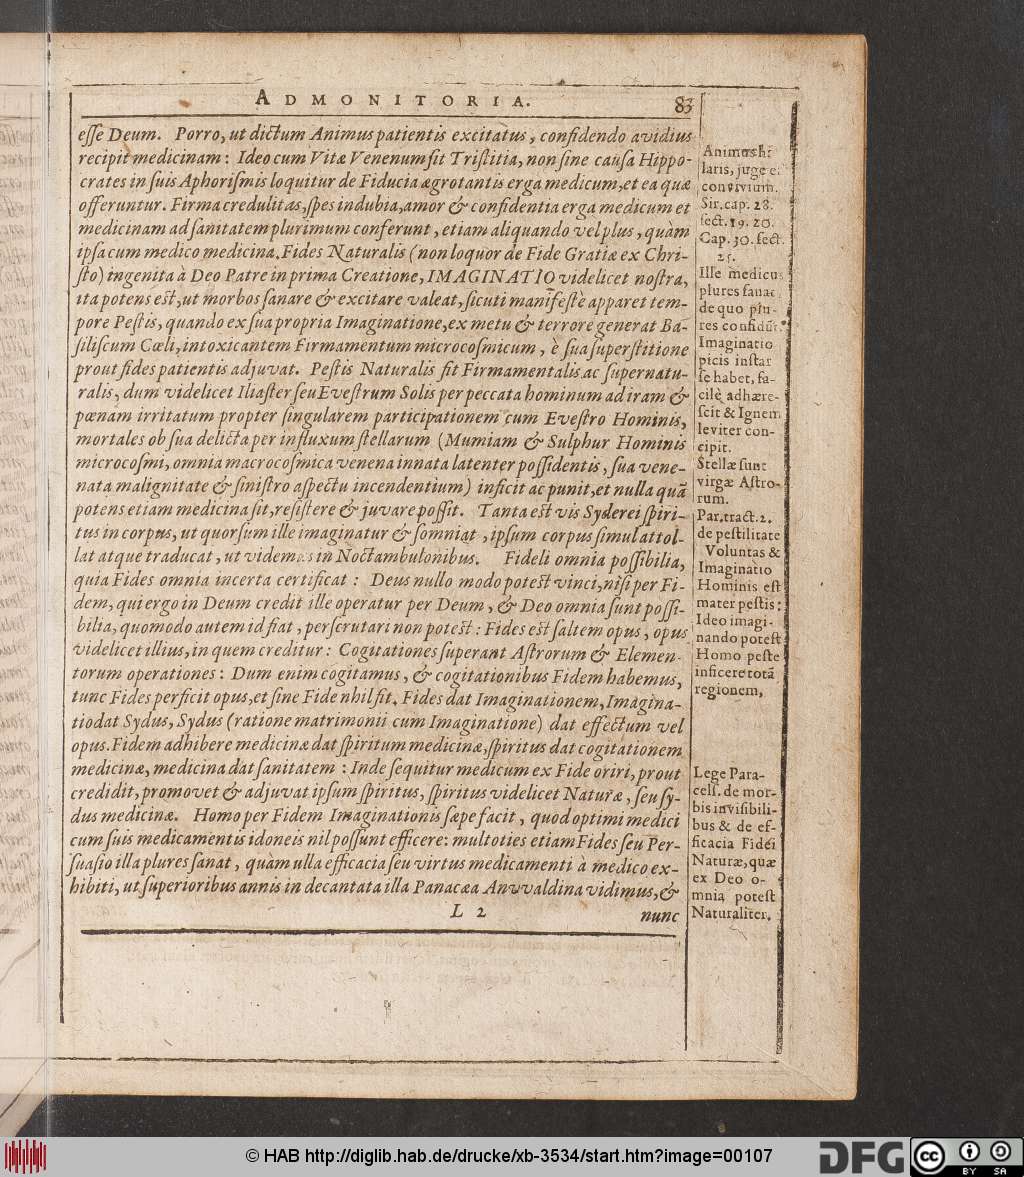 ADMONITORIA. 83
esse Deum. Porro, ut dictum Animus patientis excitatus, confidendo avidius
recipit medicinam: Ideo cum Vitæ Venenum sit Tristitia, non sine causa Hippo-
crates in suis Aphorismis loquitur de Fiducia ægrotantis erga medicum, et ea quæ
offeruntur. Firma credulitas, spes indubia, amor & confidentia erga medicum et
medicinam ad sanitatem plurimum conferunt, etiam aliquando vel plus, quàm
ipsa cum medico medicina. Fides Naturalis (non loquor de Fide Gratiæ ex Chri-
sto) ingenita à Deo Patre in prima Creatione, IMAGINATIO videlicet nostra,
ita potens est, ut morbos sanare & excitare valeat, sicuti manifestè apparet tem-
pore Pestis, quando ex sua propria Imaginatione, ex metu & terrore generat Ba-
siliscum Cœli, intoxicantem Firmamentum microcosmicum, è sua superstitione
prout fides patientis adjuvat. Pestis Naturalis fit Firmamentalis ac supernatu-
ralis, dum videlicet Iliaster seu Evestrum Solis per peccata hominum ad iram &
pœnam irritatum propter singularem participationem cum Evestro Hominis,
mortales ob sua delicta per influxum stellarum (Mumiam & Sulphur Hominis
microcosmi, omnia macrocosmica venena innata latenter possidentis, sua vene-
nata malignitate & sinistro aspectu incendentium) inficit ac punit, et nulla quã
potens etiam medicina sit, resistere & juvare possit. Tanta est vis Syderei spiri-
tus in corpus, ut quorsum ille imaginatur & somniat, ipsum corpus simul attol-
lat atque traducat, ut videmus in Noctambulonibus. Fideli omnia possibilia,
quia Fides omnia incerta certificat: Deus nullo modo potest vinci, nisi per Fi-
dem, qui ergo in Deum credit ille operatur per Deum, & Deo omnia sunt possi-
bilia, quomodo autem id fiat, perscrutari non potest: Fides est saltem opus, opus
videlicet illius, in quem creditur: Cogitationes superant Astrorum & Elemen-
torum operationes: Dum enim cogitamus, & cogitationibus Fidem habemus,
tunc Fides perficit opus, et sine Fide nhil fit. Fides dat Imaginationem, Imagina-
tio dat Sydus, Sydus (ratione matrimonii cum Imaginatione) dat effectum vel
opus. Fidem adhibere medicinæ dat spiritum medicinæ, spiritus dat cogitationem
medicinæ, medicina dat sanitatem: Inde sequitur medicum ex Fide oriri, prout
credidit, promovet & adjuvat ipsum spiritus, spiritus videlicet Naturæ, seu sy-
dus medicinæ. Homo per Fidem Imaginationis sæpe facit, quod optimi medici
cum suis medicamentis idoneis nil possunt efficere: multoties etiam Fides seu Per-
suasio illa plures sanat, quàm ulla efficacia seu virtus medicamenti à medico ex-
hibiti, ut superioribus annis in decantata illa Panacæa Anvvaldina vidimus, &
L 2 nunc
Animus hi
laris, juge e
convivium.
Sir. cap. 28.
sect. 19. 20.
Cap. 30. sect.
25.
Ille medicus
plures sanat
de quo plu-
res confidũt.
Imaginatio
picis instar
se habet, fa-
cilè adhære-
scit & Ignem
leviter con-
cipit.
Stellæ sunt
virgæ Astro-
rum.
Par. tract. 2.
de pestilitate
Voluntas &
Imaginatio
Hominis est
mater pestis:
Ideo imagi-
nando potest
Homo peste
inficere totã
regionem,
Lege Para-
cels. de mor-
bis invisibili-
bus & de ef-
ficacia Fidei
Naturæ, quæ
ex Deo o-
mnia potest
Naturaliter.
© HAB http://diglib.hab.de/drucke/xb-3534/start.htm?image=00107
DFG
cc
BY SA